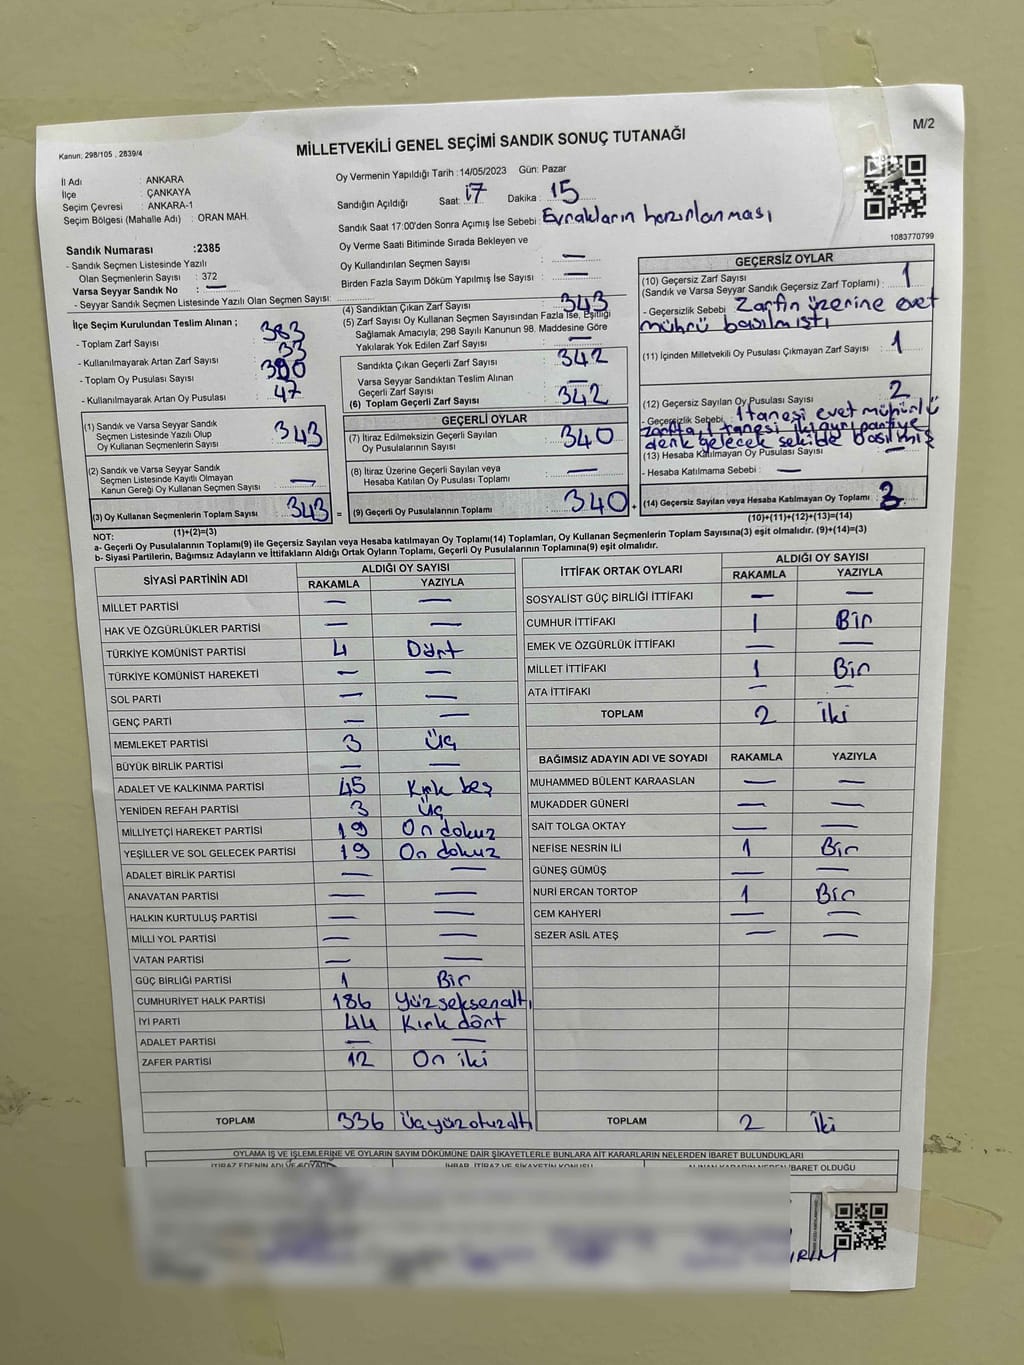 M/2
Kanun: 298/105 , 2839/4
MİLLETVEKİLİ GENEL SEÇİMİ SANDIK SONUÇ TUTANAĞI
İl Adı : ANKARA
İlçe : ÇANKAYA
Seçim Çevresi : ANKARA-1
Seçim Bölgesi (Mahalle Adı) : ORAN MAH.
Oy Vermenin Yapıldığı Tarih :14/05/2023 Gün: Pazar
Sandığın Açıldığı Saat: 17 Dakika : 15
Sandık Saat 17:00'den Sonra Açımış İse Sebebi : Evrakların hazırlanması
1083770799
Sandık Numarası :2385
- Sandık Seçmen Listesinde Yazılı
Olan Seçmenlerin Sayısı : 372
Varsa Seyyar Sandık No : —
- Seyyar Sandık Seçmen Listesinde Yazılı Olan Seçmen Sayısı:
Oy Verme Saati Bitiminde Sırada Bekleyen ve
Oy Kullandırılan Seçmen Sayısı : —
Birden Fazla Sayım Döküm Yapılmış İse Sayısı : —
İlçe Seçim Kurulundan Teslim Alınan ;
- Toplam Zarf Sayısı : 383
- Kullanılmayarak Artan Zarf Sayısı : 33
- Toplam Oy Pusulası Sayısı : 390
- Kullanılmayarak Artan Oy Pusulası : 47
(1) Sandık ve Varsa Seyyar Sandık
Seçmen Listesinde Yazılı Olup
Oy Kullanan Seçmenlerin Sayısı : 343
(2) Sandık ve Varsa Seyyar Sandık
Seçmen Listesinde Kayıtlı Olmayan
Kanun Gereği Oy Kullanan Seçmen Sayısı : —
(3) Oy Kullanan Seçmenlerin Toplam Sayısı : 343 =
(1)+(2)=(3)
(4) Sandıktan Çıkan Zarf Sayısı : 343
(5) Zarf Sayısı Oy Kullanan Seçmen Sayısından Fazla İse, Eşitliği
Sağlamak Amacıyla; 298 Sayılı Kanunun 98. Maddesine Göre
Yakılarak Yok Edilen Zarf Sayısı : —
Sandıkta Çıkan Geçerli Zarf Sayısı : 342
Varsa Seyyar Sandıktan Teslim Alınan
Geçerli Zarf Sayısı : —
(6) Toplam Geçerli Zarf Sayısı : 342
GEÇERLİ OYLAR
(7) İtiraz Edilmeksizin Geçerli Sayılan
Oy Pusulalarının Sayısı : 340
(8) İtiraz Üzerine Geçerli Sayılan veya
Hesaba Katılan Oy Pusulası Toplamı : —
(9) Geçerli Oy Pusulalarının Toplamı : 340 +
GEÇERSİZ OYLAR
(10) Geçersiz Zarf Sayısı
(Sandık ve Varsa Seyyar Sandık Geçersiz Zarf Toplamı) : 1
- Geçersizlik Sebebi : Zarfın üzerine evet
mührü basılmıştı
(11) İçinden Milletvekili Oy Pusulası Çıkmayan Zarf Sayısı : 1
(12) Geçersiz Sayılan Oy Pusulası Sayısı : 2
- Geçersizlik Sebebi : 1 tanesi evet mühürlü
zarfta, 1 tanesi iki ayrı partiye
denk gelecek şekilde basılmış
(13) Hesaba Katılmayan Oy Pusulası Sayısı : —
- Hesaba Katılmama Sebebi : —
(14) Geçersiz Sayılan veya Hesaba Katılmayan Oy Toplamı : 3
(10)+(11)+(12)+(13)=(14)
NOT:
a- Geçerli Oy Pusulalarının Toplamı(9) ile Geçersiz Sayılan veya Hesaba katılmayan Oy Toplamı(14) Toplamları, Oy Kullanan Seçmenlerin Toplam Sayısına(3) eşit olmalıdır. (9)+(14)=(3)
b- Siyasi Partilerin, Bağımsız Adayların ve İttifakların Aldığı Ortak Oyların Toplamı, Geçerli Oy Pusulalarının Toplamına(9) eşit olmalıdır.
SİYASİ PARTİNİN ADI ALDIĞI OY SAYISI
RAKAMLA YAZIYLA
MİLLET PARTİSİ — —
HAK VE ÖZGÜRLÜKLER PARTİSİ — —
TÜRKİYE KOMÜNİST PARTİSİ 4 Dört
TÜRKİYE KOMÜNİST HAREKETİ — —
SOL PARTİ — —
GENÇ PARTİ — —
MEMLEKET PARTİSİ 3 Üç
BÜYÜK BİRLİK PARTİSİ — —
ADALET VE KALKINMA PARTİSİ 45 Kırk beş
YENİDEN REFAH PARTİSİ 3 Üç
MİLLİYETÇİ HAREKET PARTİSİ 19 On dokuz
YEŞİLLER VE SOL GELECEK PARTİSİ 19 On dokuz
ADALET BİRLİK PARTİSİ — —
ANAVATAN PARTİSİ — —
HALKIN KURTULUŞ PARTİSİ — —
MİLLİ YOL PARTİSİ — —
VATAN PARTİSİ — —
GÜÇ BİRLİĞİ PARTİSİ 1 Bir
CUMHURİYET HALK PARTİSİ 186 Yüz seksenaltı
İYİ PARTİ 44 Kırk dört
ADALET PARTİSİ — —
ZAFER PARTİSİ 12 On iki
TOPLAM 336 Üçyüzotuzaltı
İTTİFAK ORTAK OYLARI ALDIĞI OY SAYISI
RAKAMLA YAZIYLA
SOSYALİST GÜÇ BİRLİĞİ İTTİFAKI — —
CUMHUR İTTİFAKI 1 Bir
EMEK VE ÖZGÜRLÜK İTTİFAKI — —
MİLLET İTTİFAKI 1 Bir
ATA İTTİFAKI — —
TOPLAM 2 İki
BAĞIMSIZ ADAYIN ADI VE SOYADI RAKAMLA YAZIYLA
MUHAMMED BÜLENT KARAASLAN — —
MUKADDER GÜNERİ — —
SAİT TOLGA OKTAY — —
NEFİSE NESRİN İLİ 1 Bir
GÜNEŞ GÜMÜŞ — —
NURİ ERCAN TORTOP 1 Bir
CEM KAHYERİ — —
SEZER ASİL ATEŞ — —
TOPLAM 2 İki
OYLAMA İŞ VE İŞLEMLERİNE VE OYLARIN SAYIM DÖKÜMÜNE DAİR ŞİKAYETLERLE BUNLARA AİT KARARLARIN NELERDEN İBARET BULUNDUKLARI
İTİRAZ EDENİN ADI VE SOYADI İHBAR, İTİRAZ VE ŞİKAYETİN KONUSU ALINAN KARARIN NEDEN İBARET OLDUĞU